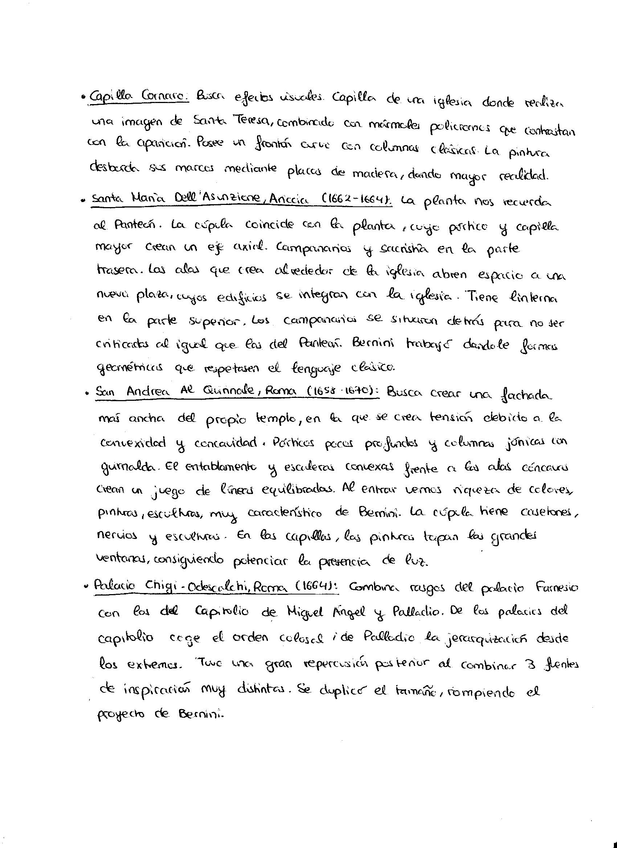 • Capilla Cornaro: Busca efectos visuales. Capilla de una iglesia donde realiza
una imagen de Santa Teresa, combinado con mármoles policromos que contrastan
con la aparición. Posee un frontón curvo con columnas clásicas. La pintura
desborda sus marcos mediante placas de madera, dando mayor realidad.
• Santa María Dell'Asunzione, Ariccia (1662-1664): La planta nos recuerda
al Panteón. La cúpula coincide con la planta, cuyo pórtico y capilla
mayor crean un eje axial. Campanarios y sacristía en la parte
trasera. Las alas que crea alrededor de la iglesia abren espacio a una
nueva plaza, cuyos edificios se integran con la iglesia. Tiene linterna
en la parte superior. Los campanarios se situaron detrás para no ser
criticados al igual que los del Panteón. Bernini trabajó dandole formas
geométricas que respetasen el lenguaje clásico.
• San Andrea Al Quirinale, Roma (1658-1670): Busca crear una fachada
más ancha del propio templo, en la que se crea tensión debido a la
convexidad y concavidad. Pórticos pocos profundos y columnas jónicas con
guirnalda. El entablamento y escaleras convexas frente a las alas cóncavas
crean un juego de líneas equilibradas. Al entrar vemos riqueza de colores,
pinturas, esculturas, muy característico de Bernini. La cúpula tiene casetones,
nervios y esculturas. En las capillas, las pinturas tapan las grandes
ventanas, consiguiendo potenciar la presencia de luz.
• Palacio Chigi-Odescalchi, Roma (1664): Combina rasgos del palacio Farnesio
con los del Capitolio de Miguel Ángel y Palladio. De los palacios del
capitolio coge el orden colosal i de Palladio la jerarquización desde
los extremos. Tuvo una gran repercusión posterior al combinar 3 fuentes
de inspiración muy distintas. Se duplicó el tamaño, rompiendo el
proyecto de Bernini.